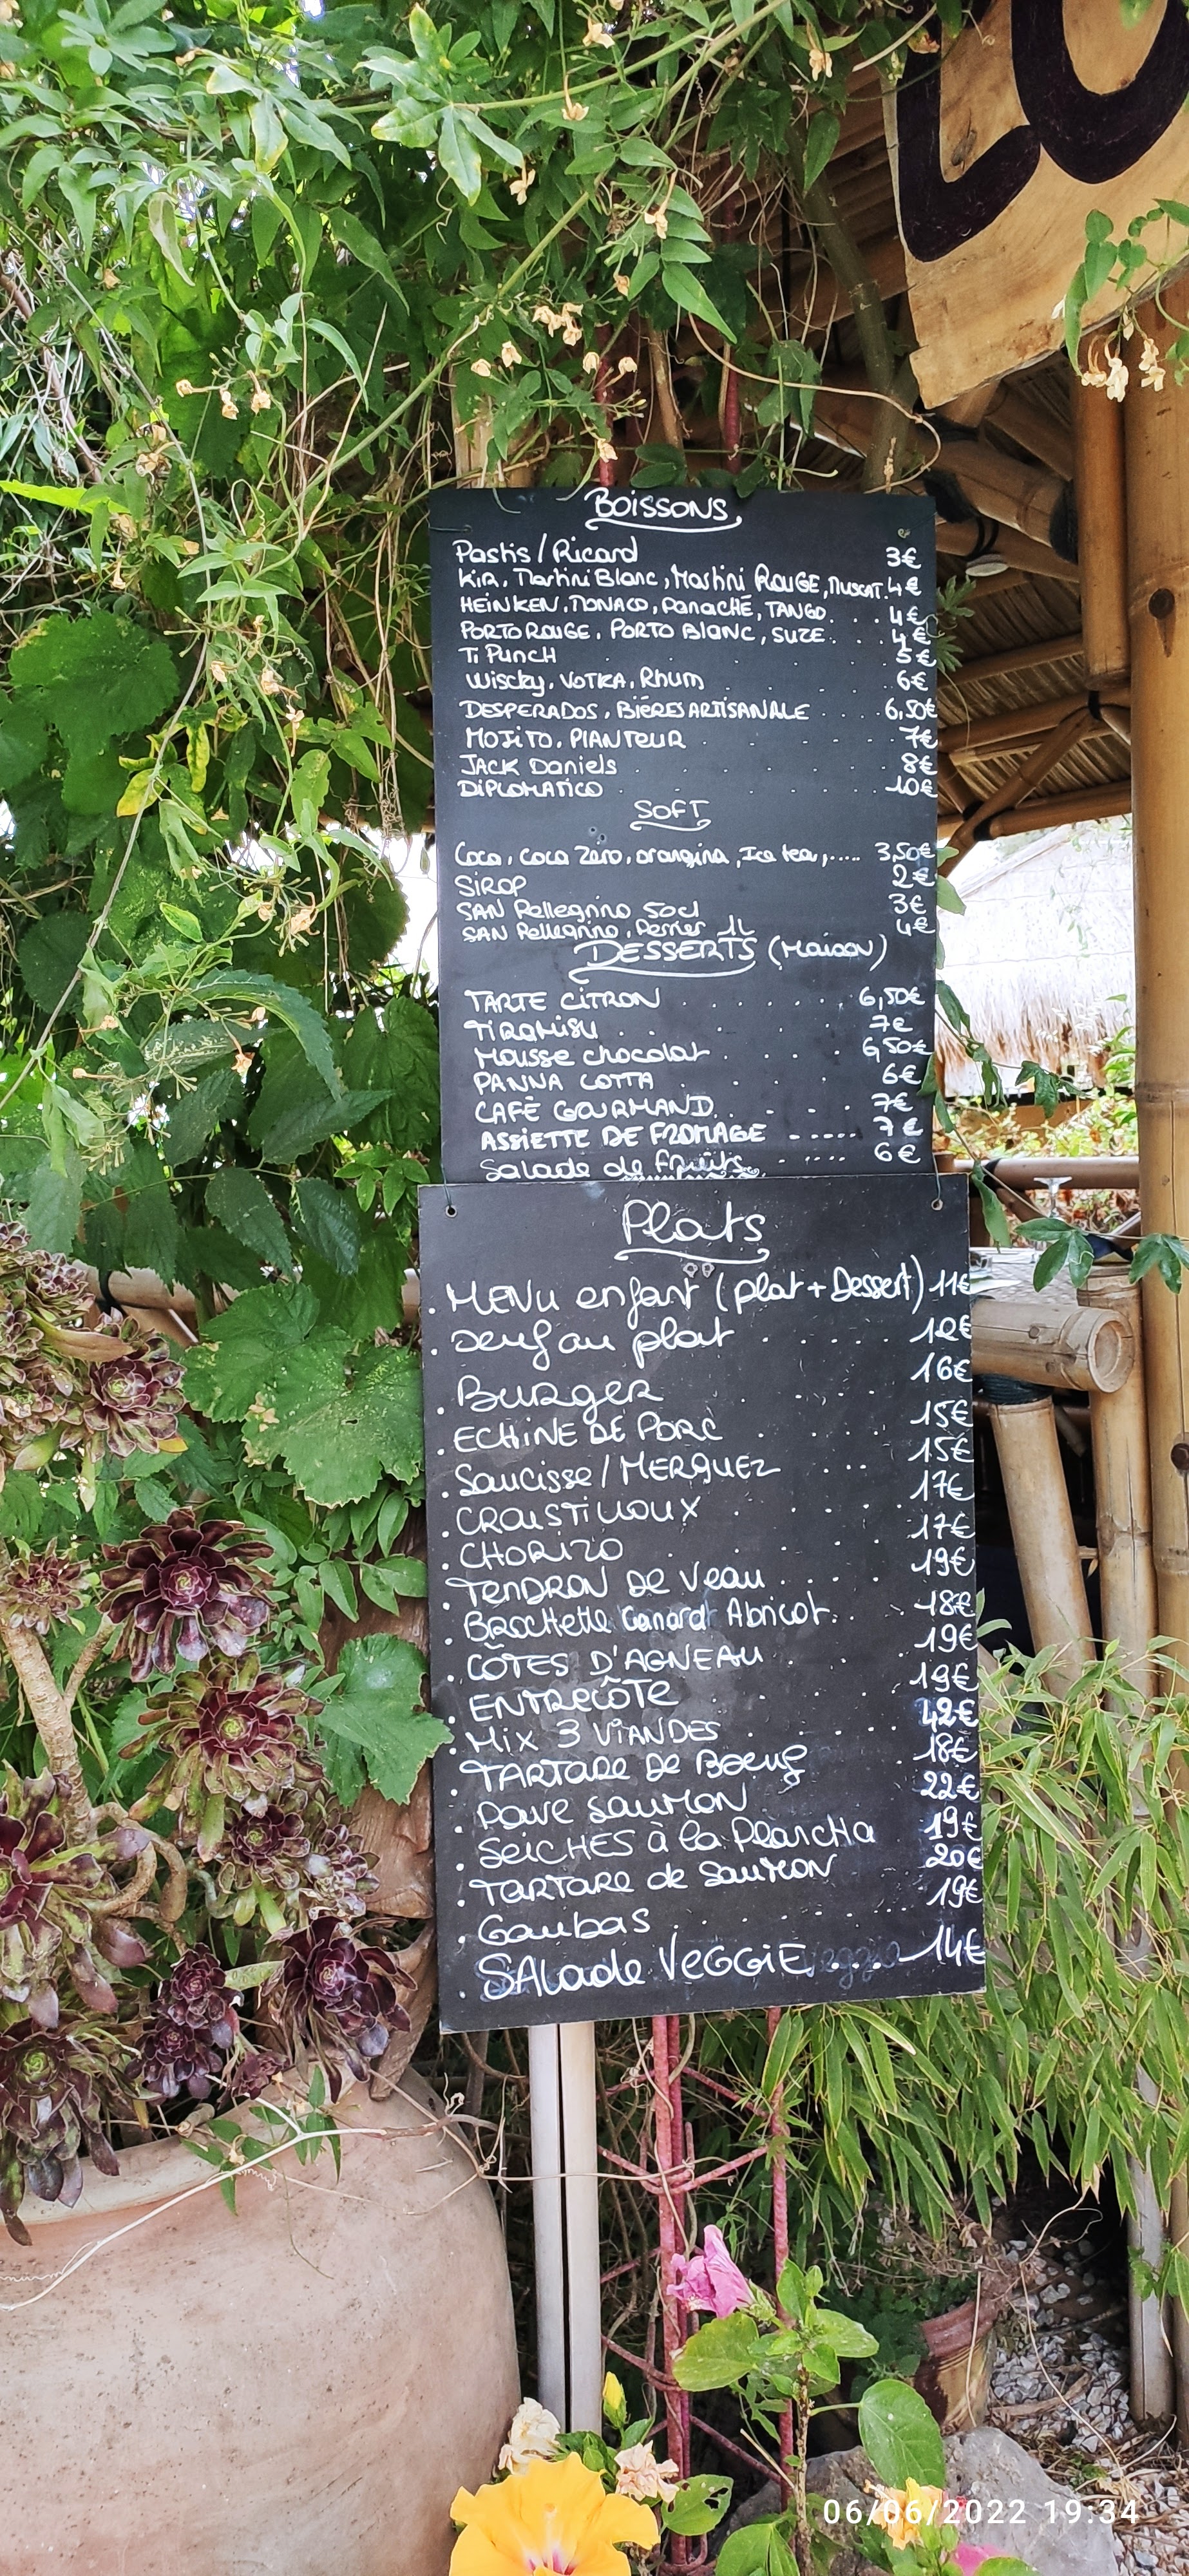 LO
BOISSONS
Pastis / Ricard 3€
KIR, Martini Blanc, Martini ROUGE, MUSCAT. 4€
HEINKEN, MONACO, PANACHÉ, TANGO. . . 4€
PORTO ROUGE, PORTO BLANC, SUZE. . . 4€
Ti PUNCH . . . . 5€
Wiscky, VOTKA, Rhum . . . . 6€
DESPERADOS, BIÈRES ARTISANALE . . . . 6,50€
MOJITO, PLANTEUR . . . . . 7€
JACK Daniels . . . . . 8€
DIPLOMATICO . . . . . 10€
SOFT
Coca, Coca Zéro, orangina, Ice tea, ..... 3,50€
SIROP 2€
SAN Pellegrino 50cl 3€
SAN Pellegrino, Perrier 1L 4€
DESSERTS (Maison)
TARTE CITRON . . . . . . 6,50€
TIRAMISU . . . . . 7€
Mousse chocolat . . . . 6,50€
PANNA COTTA . . . . 6€
CAFÉ GOURMAND. . . . . 7€
ASSIETTE DE FROMAGE ..... 7€
Salade de fruits . ..... 6€
Plats
. MENU enfant (plat + Dessert) 11€
. oeuf au plat . . . . . 12€
. Burger . . . . 16€
. ECHINE DE PORC . . . . 15€
. Saucisse / MERGUEZ . . . 15€
. CROUSTILLOUX . . . . 17€
. CHORIZO . . . . . 17€
. TENDRON DE Veau . . . . 19€
. Brochette Canard Abricot. . . 18€
. CÔTES D'AGNEAU . . . . 19€
. ENTRECÔTE . . . . 19€
. MIX 3 VIANDES . . . . 42€
. TARTARE DE Boeuf 18€
. PAVE SAUMON 22€
. SEICHES à la PlanCHa 19€
. TARTARE de SAUMON 20€
. Gambas . . . . . . . 19€
. SALade VEGGIE . . . . 14€
06/06/2022 19:34